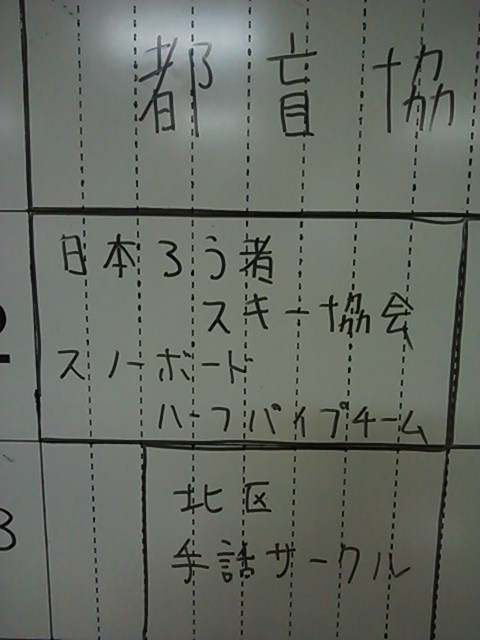 都盲協
日本ろう者
スキー協会
スノーボード
ハーフパイプチーム
北区
手話サークル